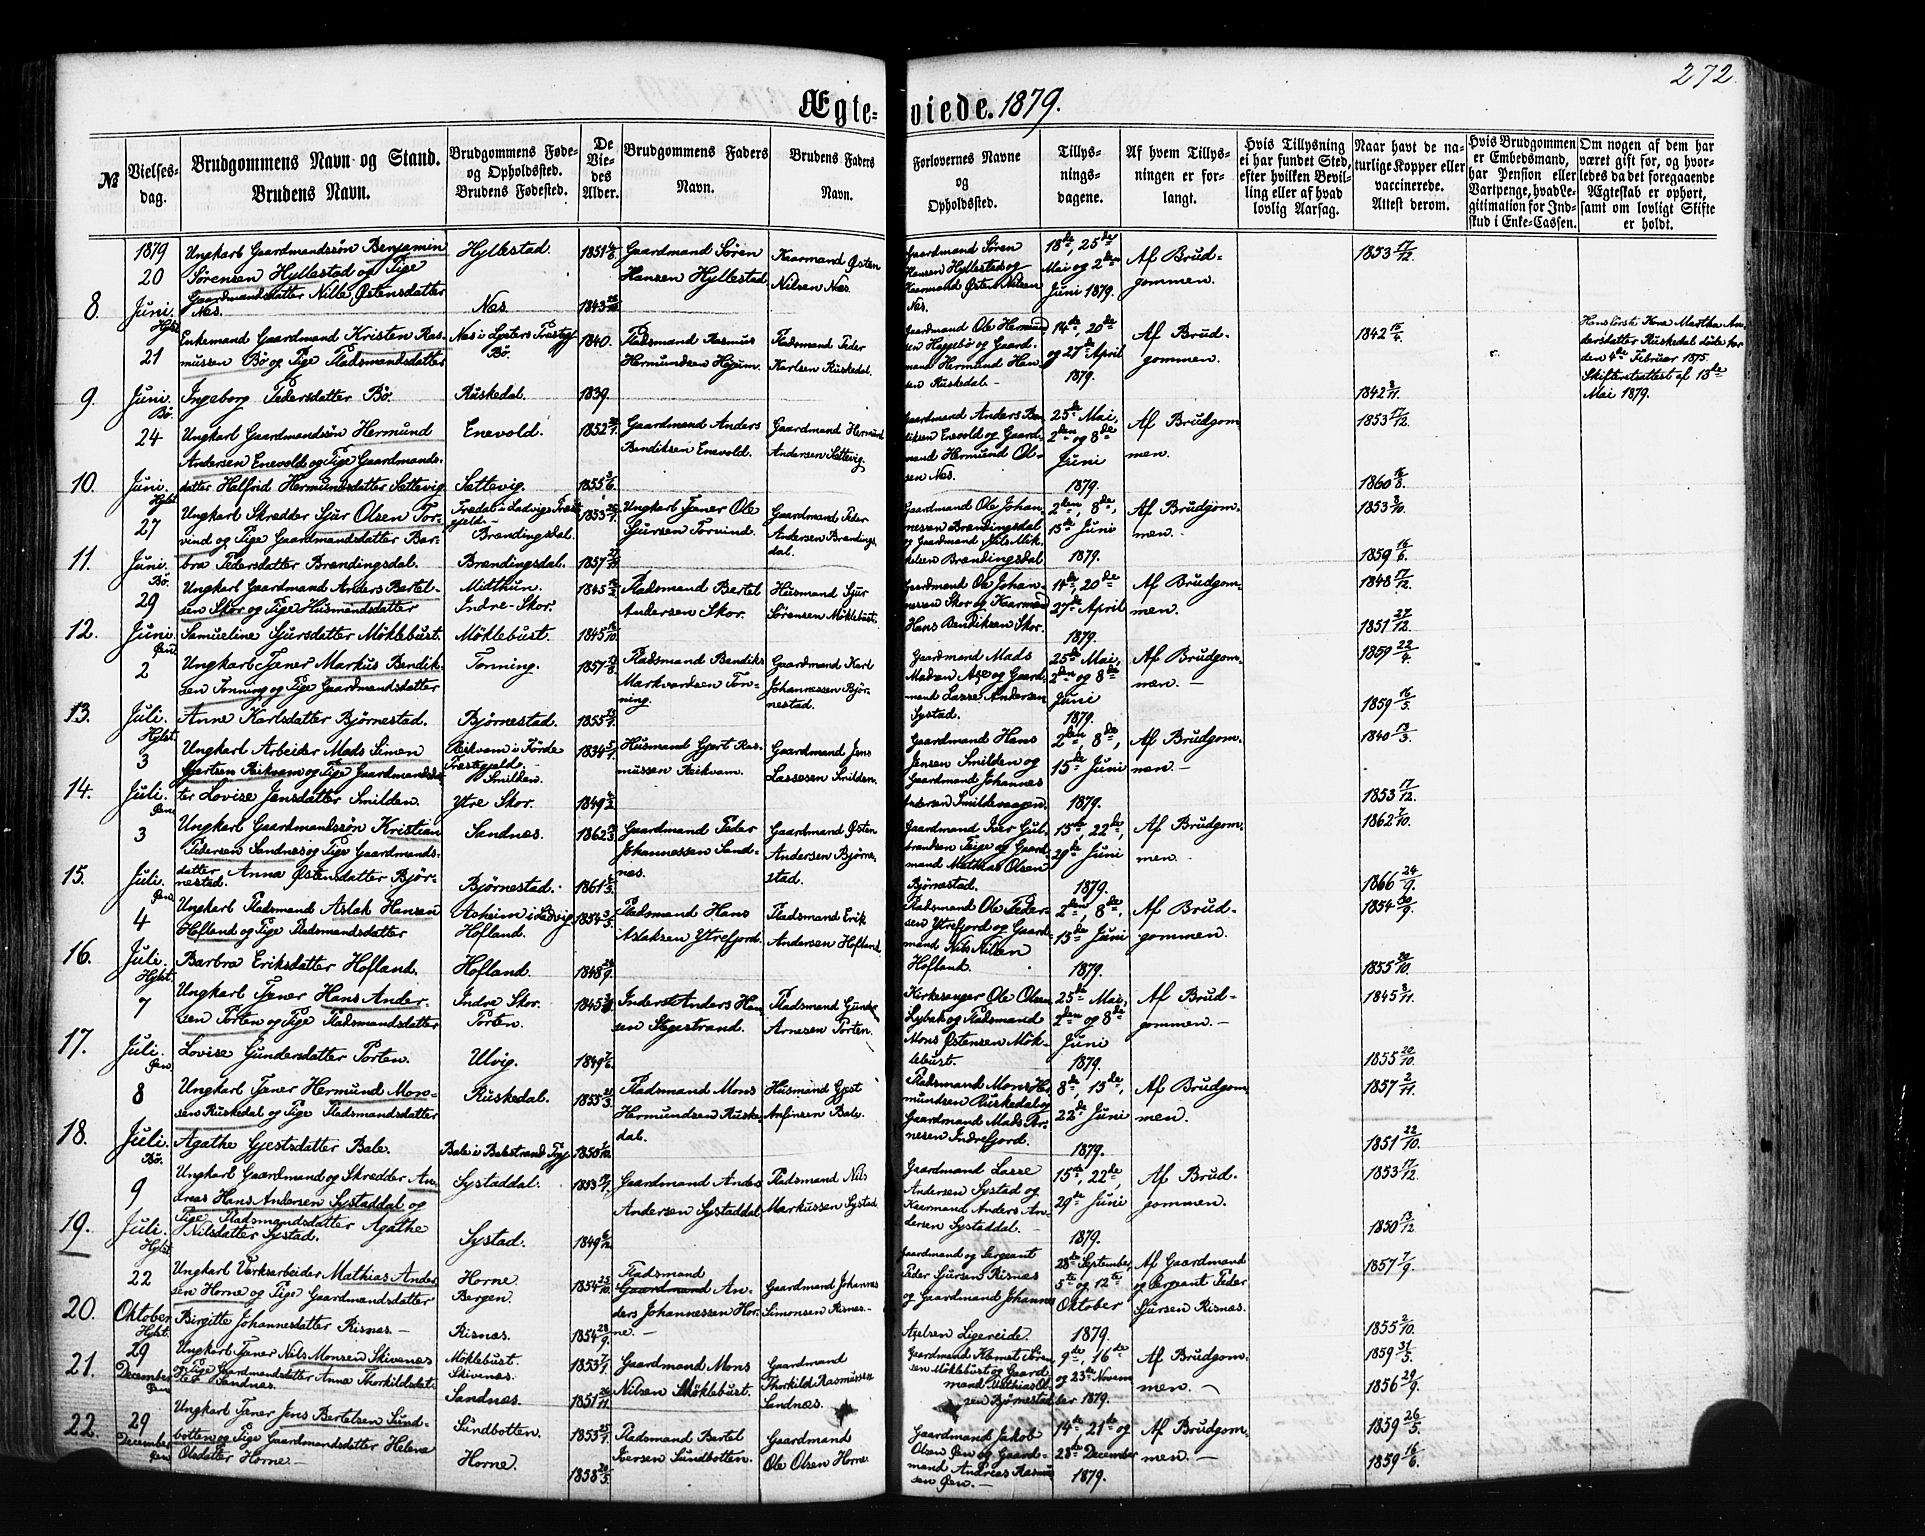 272.
Ægteviede. 1879.
№
Vielsesdag.
Brudgommens Navn og Stand.
Brudens Navn.
Brudgommens Føde- og Opholdssted.
Brudens Fødested.
De Viedes Alder.
Brudgommens Faders Navn.
Brudens Faders Navn.
Forlovernes Navne og Opholdssted.
Tillysningsdagene.
Af hvem Tillysningen er forlangt.
Hvis Tillysning ei har fundet Sted, efter hvilken Bevilling eller af hvad lovlig Aarsag.
Naar havt de naturlige Kopper eller vaccinerede. Attest derom.
Hvis Brudgommen er Embedsmand, har Pension eller Vartpenge, hvad Legitimation for Indskud i Enke-Cassen.
Om nogen af dem har været gift før, og hvorledes da det foregaaende Ægteskab er ophørt, samt om lovligt Skifte er holdt.
8. 1879 20 Juni. Hylst.
Ungkarl Gaardmandssøn Benjamin
Sørensen Hyllestad og Pige
Gaardmandsdatter Nille Østensdatter
Næs.
Hyllestad.
Næs.
Gaardmand Søren
Hansen Hyllestad
Kaarmand Østen
Nilsen Næs.
Gaardmand Søren
Hansen Hyllestad og
Kaarmand Østen Nilsen
Næs.
18de, 25de
Mai og 2den
Juni 1879.
Af Brudgommen.
1853 17/12.
9. 21 Juni. Bø.
Enkemand Gaardmand Kristen Rasmussen
Bø og Pige Pladsmandsdatter
Ingeborg Pedersdatter Bø.
Næs i Lysters Præstegj
Bø.
Ruskedal.
1840.
1839.
Pladsmand Rasmus
Hermundsen Højum.
Pladsmand Peder
Karlsen Ruskedal.
Gaardmand Ole Hermundsen
Haggebø og Gaardmand
Hermund Hansen
Ruskedal.
14de, 20de
og 27de April
1879.
Af Brudgommen.
1842 15/4.
1842 8/11.
Hans første Kone Martha Andersdatter
Ruskedal døde her
den 4de Februar 1875.
Skifteretsattest af 13de
Mai 1879.
10. 24 Juni. Hylst
Ungkarl Gaardmandssøn Hermund
Andersen Enevold og Pige Gaardmandsdatter
Halfrid Hermundsdatter Sættevig.
Enevold.
Sættevig.
Gaardmand Anders
Bendiksen Enevold.
Gaardmand Hermund
Andersen Sættevig.
Gaardmand Anders Bendiksen
Enevold og Gaardmand
Hermund Olsen
Næs.
25de Mai,
2den og 8de
Juni
1879.
Af Brudgommen.
1853 17/12.
1860 16/8.
11. 27 Juni. Bø.
Ungkarl Skrædder Sjur Olsen Torvind
og Pige Gaardmandsdatter Barbra
Pedersdatter Brændingsdal.
Brændingsdal.
Brændingsdal.
Ungkarl Tjener Ole
Sjursen Torvind.
Gaardmand Peder
Andersen Brændingsdal.
Gaardmand Ole Johannesen
Brændingsdal
og Gaardmand Nils Mikkelsen
Brændingsdal
2den, 8de,
15de Juni
1879.
Af Brudgommen.
1853 8/10.
1859 16/6.
12. 29 Juni. Øen
Ungkarl Gaardmand Anders Bertelsen
Skor og Pige Husmandsdatter
Samueline Sjursdatter Møklebust.
Midthun.
Indre-Skor.
Møklebust.
Pladsmand Bertel
Andersen Skor.
Husmand Sjur
Sørensen Møklebust.
Gaardmand Ole Johannessen
Skor og Kaarmand
Hans Bendiksen Skor.
14de, 20de
27de April
1879.
Af Brudgommen.
1848 17/12.
1851 27/12.
13. 2 Juli. Hylst.
Ungkarl Tjener Markus Bendiksen
Tonning og Pige Gaardmandsdatter
Anne Karlsdatter Bjørnestad.
Tonning.
Bjørnestad.
Pladsmand Bendiks
Markvardsen Tonning.
Gaardmand Karl
Johannessen Bjørnestad.
Gaardmand Mads
Madsen Aae og Gaardmand
Lasse Andersen
Systad.
25de Mai,
2den og 8de
Juni
1879.
Af Brudgommen.
1859 22/4.
1859 16/5.
14. 3 Juli. Øen.
Ungkarl Arbeider Mads Simon
Gjertsen Reikvam og Pige Gaardmandsdatter
Lovise Jensdatter Smilden.
Reikvam i Førde
Præstegjeld.
Smilden.
Ytre Skor.
Husmand Gjert Rasmussen
Reikvam.
Gaardmand Jens
Lassesen Smilden.
Gaardmand Hans
Jensen Smilden og
Gaardmand Johannes
Andersen Smildevaagen.
2den, 8de,
15de Juni
1879.
Af Brudgommen.
1840 13/3.
1853 17/12.
15. 3 Juli. Øen.
Ungkarl Gaardmandssøn Kristian
Pedersen Sandnæs og Pige Gaardmandsdatter
Anna Østensdatter Bjørnestad.
Sandnæs.
Bjørnestad.
Gaardmand Peder
Johannessen Sandnæs.
Gaardmand Østen
Andersen Bjørnestad.
Gaardmand Iver Gulbrandsen
Teige og Gaardmand
Mathias Olsen
Bjørnestad.
15de, 22de,
29de Juni
1879.
Af Brudgommen.
1862 7/10.
1866 24/9.
16. 4 Juli. Hylst.
Ungkarl Pladsmand Aslak Hansen
Hofland og Pige Pladsmandsdatter
Barbra Eriksdatter Hofland.
Aaheim i Ladvig
Hofland.
Hofland.
Pladsmand Hans
Aslaksen Ytrefjord.
Pladsmand Erik
Andersen Hofland.
Pladsmand Ole Pedersen
Ytrefjord og Gaardmand
Nils Nilsen
Hofland.
2den, 8de,
15de Juni
1879.
Af Brudgommen.
1854 30/9.
1855 20/10.
17. 7 Juli. Øen.
Ungkarl Tjener Hans Andersen
Porten og Pige Pladsmandsdatter
Lovise Gundersdatter Porten.
Indre Skor.
Porten.
Ulvig.
Inderst Anders Hansen
Stegestrand.
Pladsmand Gunder
Arnesen Porten.
Kirkesanger Ole Olsen
Lybæk og Pladsmand
Mons Østensen Møklebust.
25de Mai,
2den og 8de
Juni
1879.
Af Brudgommen.
1845 8/11.
1855 20/10.
18. 8 Juli. Bø.
Ungkarl Tjener Hermund Monsen
Ruskedal og Pige Pladsmandsdatter
Agathe Gjestsdatter Bale.
Ruskedal.
Bale i Balestrand Pgj
Pladsmand Mons
Hermundsen Ruskedal.
Husmand Gjest
Anfinsen Bale.
Pladsmand Mons Hermundsen
Ruskedal og
Gaardmand Mads Arnesen
Indrefjord.
8de, 15de,
22de Juni
1879.
Af Brudgommen.
1857 2/11.
1851 22/10.
19. 9 Juli. Hylst
Ungkarl Gaardmand og Skrædder Andreas
Hans Andersen Systaddal og
Pige Pladsmandsdatter Agathe
Nilsdatter Systad.
Systaddal.
Systad.
Gaardmand Anders
Andersen Systaddal
Pladsmand Nils
Markussen Systad
Gaardmand Lasse
Andersen Systad og
Kaarmand Anders Andersen
Systaddal.
15de, 22de,
29de Juni
1879.
Af Brudgommen.
1853 17/12.
1850 13/12.
20. 22 Oktober Hylst.
Ungkarl Værksarbeider Mathias Andersen
Horne og Pige Gaardmandsdatter
Birgitte Johannesdatter Risnæs.
Horne
Bergen.
Risnæs.
1854 25/10.
1854 28/9.
Pladsmand
Gaardmand Anders
Johannessen Horne.
Gaardmand Johannes
Simonsen Risnæs.
Gaardmand og Sergeant
Peder Sjursen Risnæs
og Gaardmand Johannes
Axelsen Ligereide.
28de September,
5te og 12te
Oktober
1879.
Af Gaardmand
og Sergeant Peder
Sjursen Risnæs.
1857 7/9.
1855 2/10.
21. 29 December Øen
Ungkarl Tjener Nils Monsen Skivenæs
og Pige Gaardmandsdatter Anna Thorkildsdatter
Sandnæs.
Møklebust.
Skivenæs.
Sandnæs.
1853 7/1.
Gaardmand Mons
Nilsen Møklebust.
Gaardmand
Thorkild Rasmussen
Sandnæs.
9de, 16de
og 23de November
1879.
Af Brudgommen.
1859 31/5.
1856 29/9.
22. 29 December Øen
Ungkarl Tjener Jens Bertelsen Sundbotten
og Pige Gaardmandsdatter Helene
Olsdatter Horne.
Sundbotten.
Horne.
Pladsmand Bertel
Iversen Sundbotten.
Gaardmand
Ole Olsen Horne.
Gaardmand Jakob
Olsen Øen og Gaardmand
Andreas Rasmussen
Øen.
14de, 21de og
28de December
1879.
Af Brudgommen.
1859 26/5.
1859 16/6.